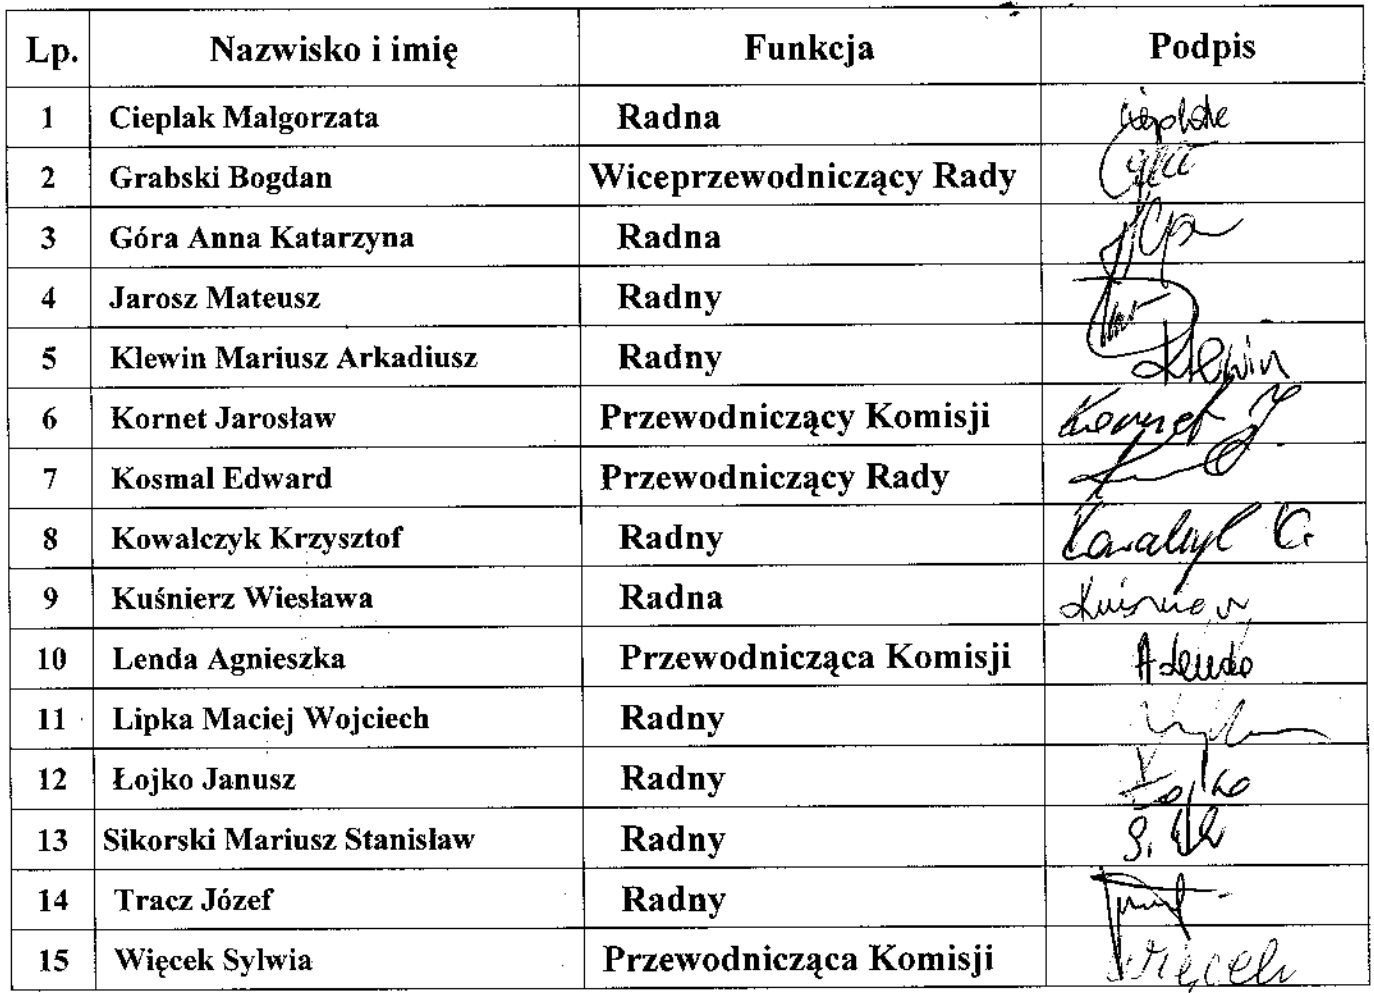 Lp. Nazwisko i imię Funkcja Podpis
1 Cieplak Małgorzata Radna
2 Grabski Bogdan Wiceprzewodniczący Rady
3 Góra Anna Katarzyna Radna
4 Jarosz Mateusz Radny
5 Klewin Mariusz Arkadiusz Radny Klewin
6 Kornet Jarosław Przewodniczący Komisji Kornet J.
7 Kosmal Edward Przewodniczący Rady
8 Kowalczyk Krzysztof Radny Kowalczyk K.
9 Kuśnierz Wiesława Radna
10 Lenda Agnieszka Przewodnicząca Komisji A Lenda
11 Lipka Maciej Wojciech Radny
12 Łojko Janusz Radny Łojko
13 Sikorski Mariusz Stanisław Radny
14 Tracz Józef Radny
15 Więcek Sylwia Przewodnicząca Komisji Więcek